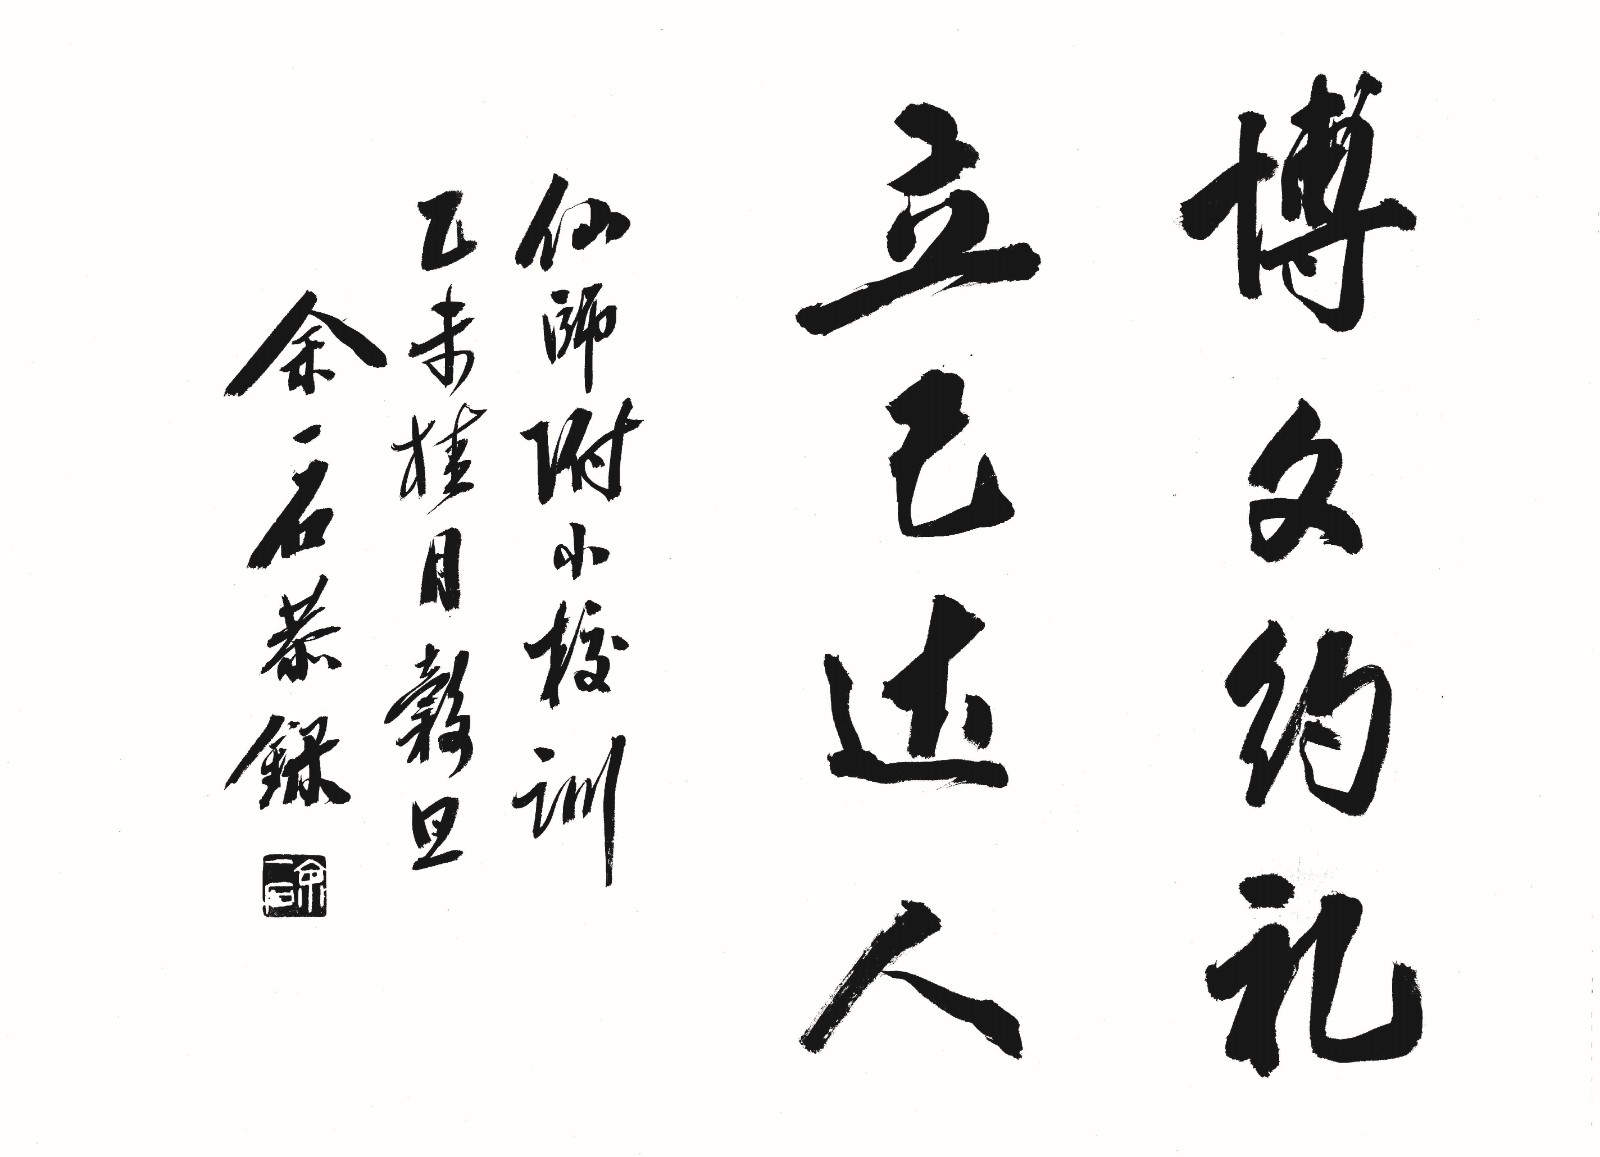 博文约礼
立己达人
仙師附小校训
乙未桂月穀旦
余一石恭録
余一石